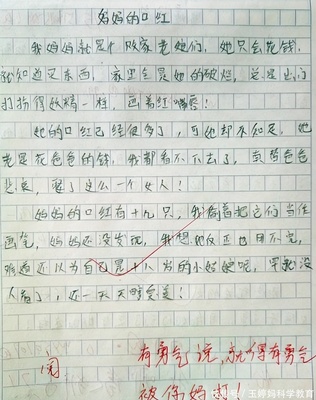 妈妈的口红
我妈妈就是个败家老娘们，她只会花钱，
就知道买东西，家里全是她的破烂，总是出门
打扮得妖精一样，画着红嘴唇！
她的口红已经很多了，可她却不知足，她
老是花爸爸的钱，我都看不下去了，真替爸爸
悲哀，娶了这么一个女人！
妈妈的口红有十九只，我偷着把它们当作
画笔，妈妈还没发现，我想她反正也用不完，
还以为自己是十八岁的小姑娘呢，早就没
人看了，还一天天臭美！
阅
有勇气说，就得有勇气
被你妈打！
玉婷妈科学教育